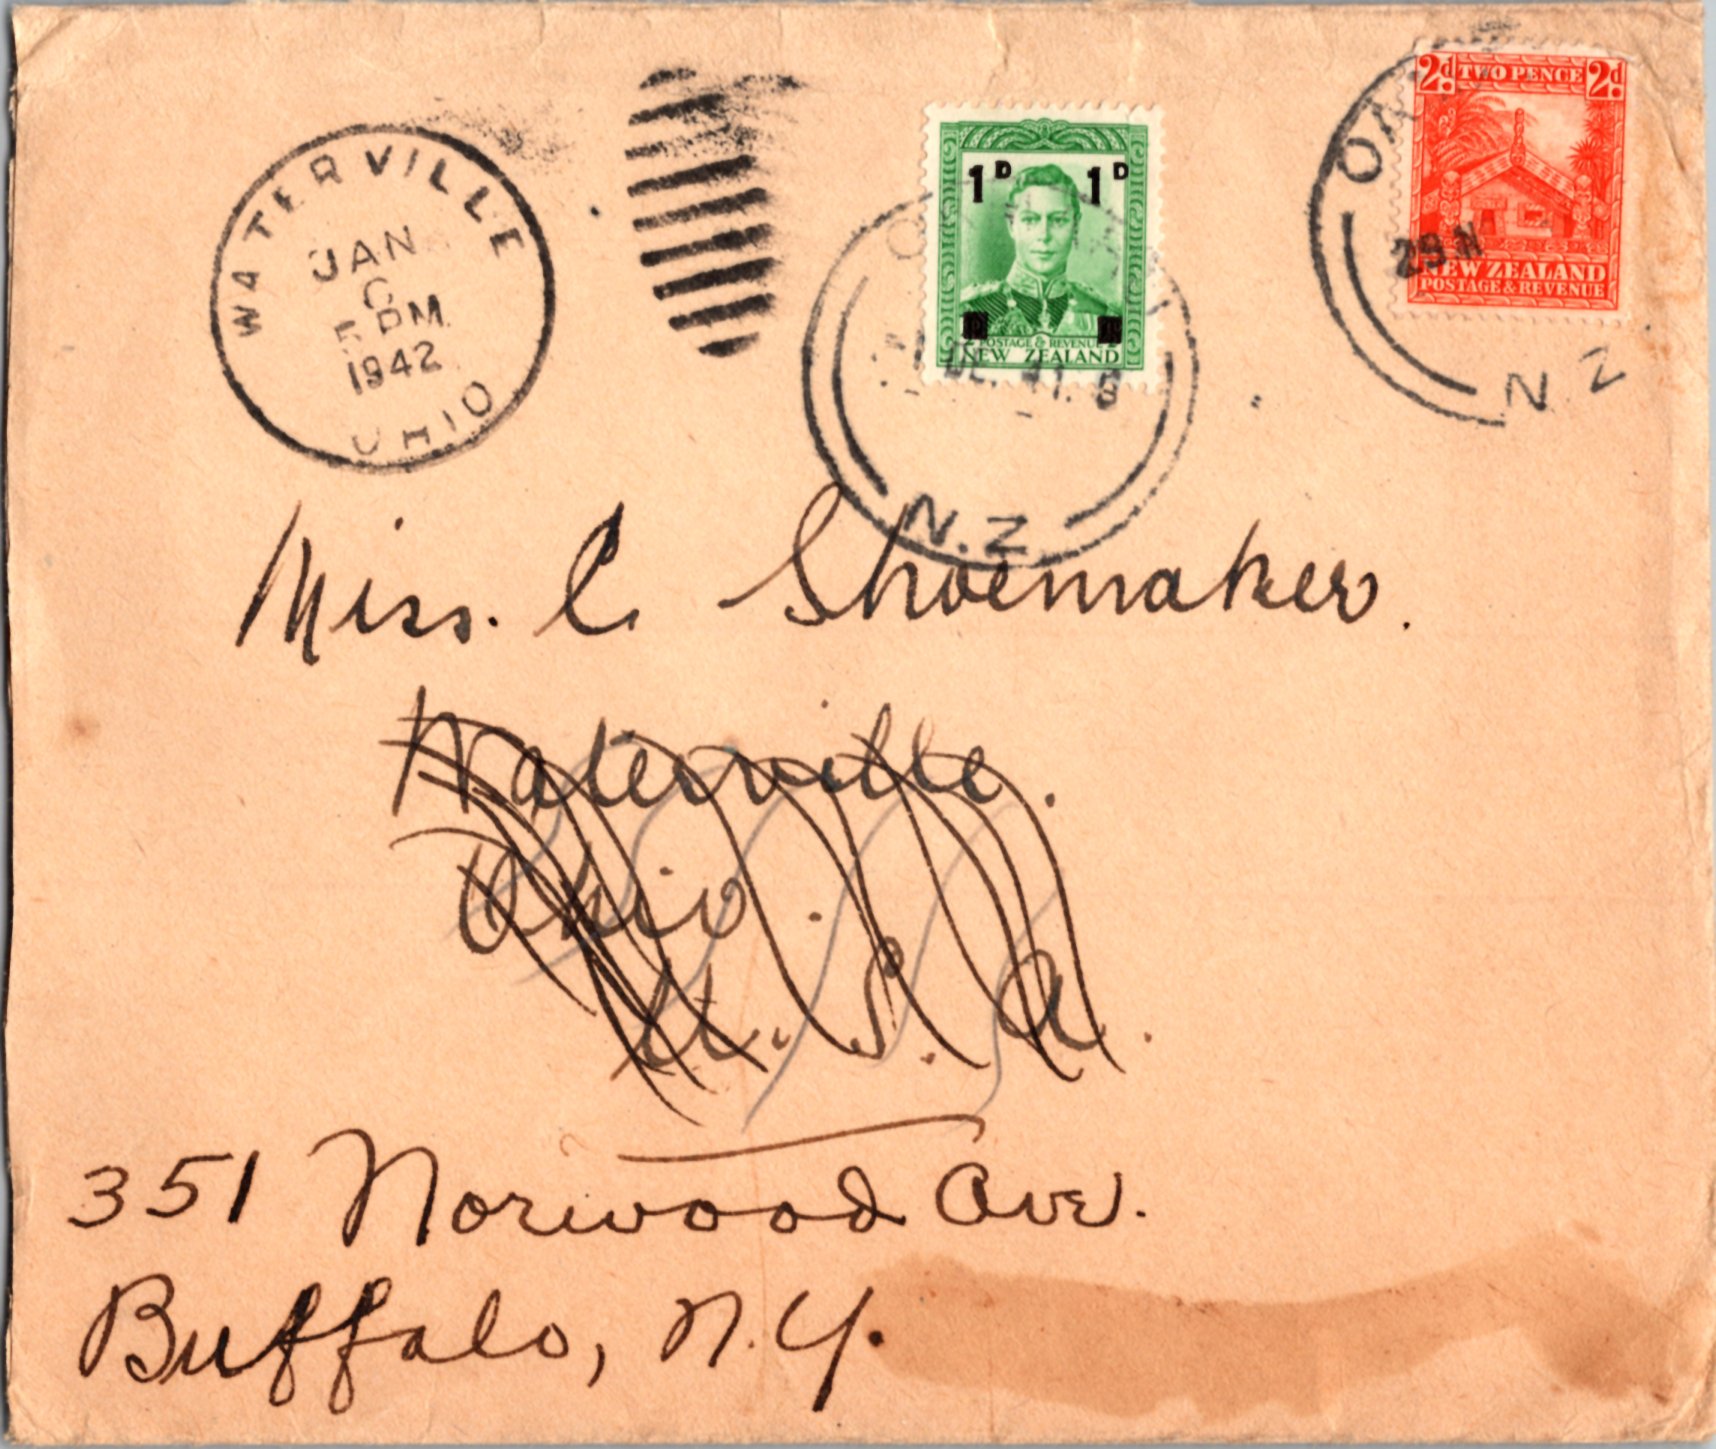 WATERVILLE
JAN
5 PM
1942
OHIO
1D 1D
POSTAGE & REVENUE
NEW ZEALAND
DE. 41.
N.Z
2d TWO PENCE 2d
NEW ZEALAND
POSTAGE & REVENUE
29 N
N Z
Miss. C. Shoemaker.
Waterville.
Ohio.
U.S.A.
351 Norwood Ave.
Buffalo, N.Y.